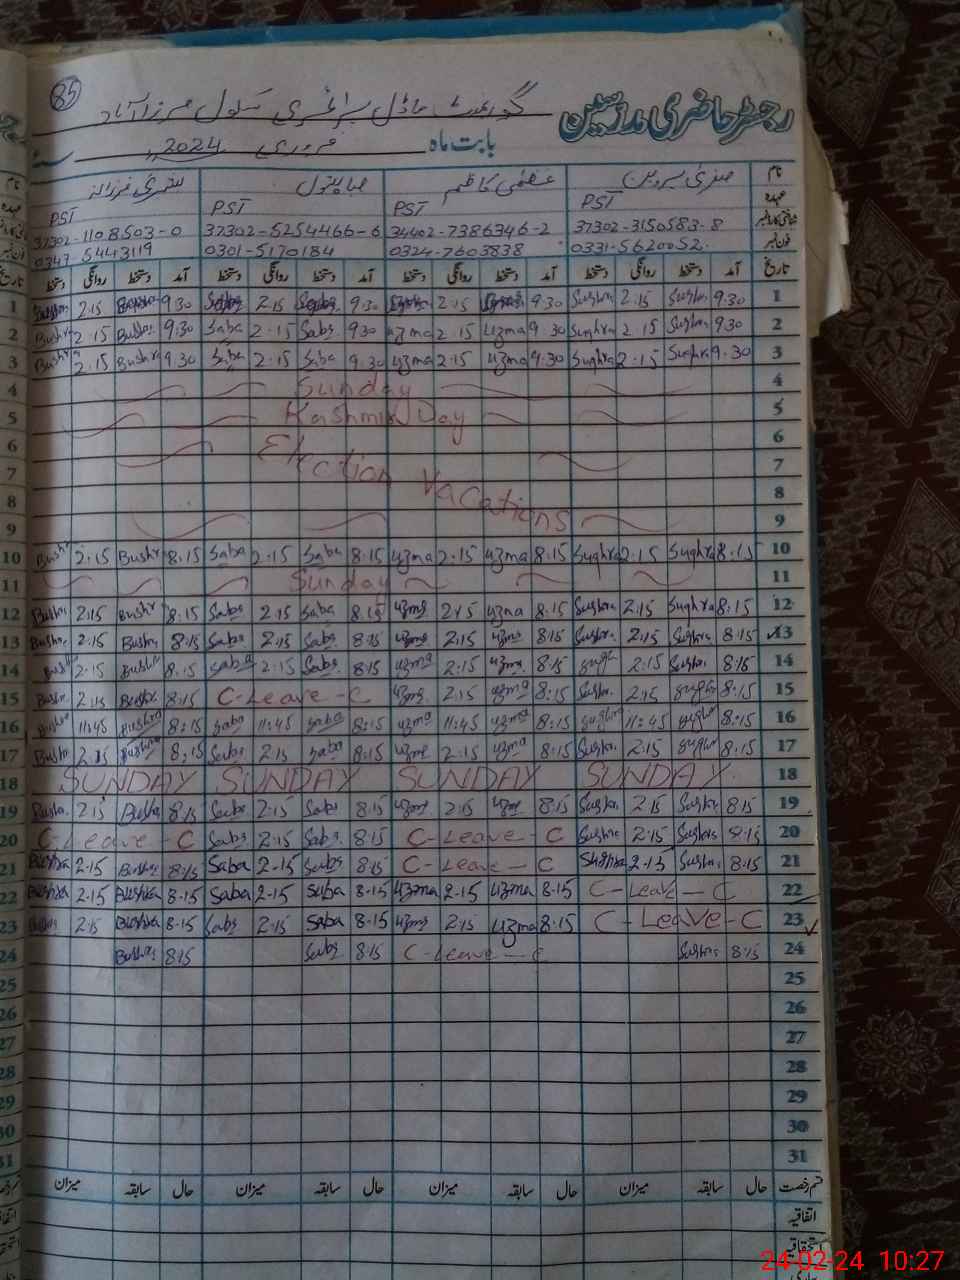 85
رجسٹر حاضری مدرسین گورنمنٹ ماڈل پرائمری سکول
بابت ماہ فروری 2024
نام صغریٰ پروین عظمیٰ کاظم صبا بتول بشریٰ فرزانہ
عہدہ PST PST PST PST
37302-3150583-8 34402-7386346-2 37302-5254466-6 37302-1108503-0
فون نمبر 0331-5620052 0324-7603838 0301-5170184 0347-5443119
تاریخ آمد دستخط روانگی دستخط آمد دستخط روانگی دستخط آمد دستخط روانگی دستخط آمد دستخط روانگی دستخط
1 Bushra 2.15 Bushra 9.30 Saba 2.15 Saba 9.30 Uzma 2.15 Uzma 9.30 Sughra 2.15 Sughra 9.30 1
2 Bushra 2.15 Bushra 9.30 Saba 2.15 Saba 9.30 Uzma 2.15 Uzma 9.30 Sughra 2.15 Sughra 9.30 2
3 Bushra 2.15 Bushra 9.30 Saba 2.15 Saba 9.30 Uzma 2.15 Uzma 9.30 Sughra 2.15 Sughra 9.30 3
4 Sunday 4
5 Kashmir Day 5
6 Election Vacations 6
7 7
8 8
9 9
10 Bushra 2.15 Bushra 8.15 Saba 2.15 Saba 8.15 Uzma 2.15 Uzma 8.15 Sughra 2.15 Sughra 8.15 10
11 Sunday 11
12 Bushra 2.15 Bushra 8.15 Saba 2.15 Saba 8.15 Uzma 2.15 Uzma 8.15 Sughra 2.15 Sughra 8.15 12
13 Bushra 2.15 Bushra 8.15 Saba 2.15 Saba 8.15 Uzma 2.15 Uzma 8.15 Sughra 2.15 Sughra 8.15 13
14 Bushra 2.15 Bushra 8.15 Saba 2.15 Saba 8.15 Uzma 2.15 Uzma 8.15 Sugh 2.15 Sughra 8.15 14
15 Bushra 2.15 Bushra 8.15 C-Leave-C Uzma 2.15 Uzma 8.15 Sughra 2.15 Sughra 8.15 15
16 Bushra 11:45 Bushra 8:15 Saba 11:45 Saba 8:15 Uzma 11:45 Uzma 8:15 Sughra 11:45 Sughra 8:15 16
17 Bushra 2.15 Bushra 8.15 Saba 2.15 Saba 8.15 Uzma 2.15 Uzma 8.15 Sughra 2.15 Sughra 8.15 17
18 SUNDAY SUNDAY SUNDAY SUNDAY 18
19 Bushra 2.15 Bushra 8.15 Saba 2.15 Saba 8.15 Uzma 2.15 Uzma 8.15 Sughra 2.15 Sughra 8.15 19
20 C-Leave-C Saba 2.15 Saba 8.15 C-Leave-C Sughra 2.15 Sughra 8.15 20
21 Bushra 2.15 Bushra 8.15 Saba 2.15 Saba 8.15 C-Leave-C Sughra 2.15 Sughra 8.15 21
22 Bushra 2.15 Bushra 8.15 Saba 2.15 Saba 8.15 Uzma 2.15 Uzma 8.15 C-Leave-C 22
23 Bushra 2.15 Bushra 8.15 Saba 2.15 Saba 8.15 Uzma 2.15 Uzma 8.15 C-Leave-C 23
24 Bushra 8.15 Saba 8.15 C-Leave-C Sughra 8.15 24
25 25
26 26
27 27
28 28
29 29
30 30
31 31
قسم رخصت حال سابقہ میزان حال سابقہ میزان حال سابقہ میزان حال سابقہ میزان
اتفاقیہ
استحقاقیہ
24-02-24 10:27